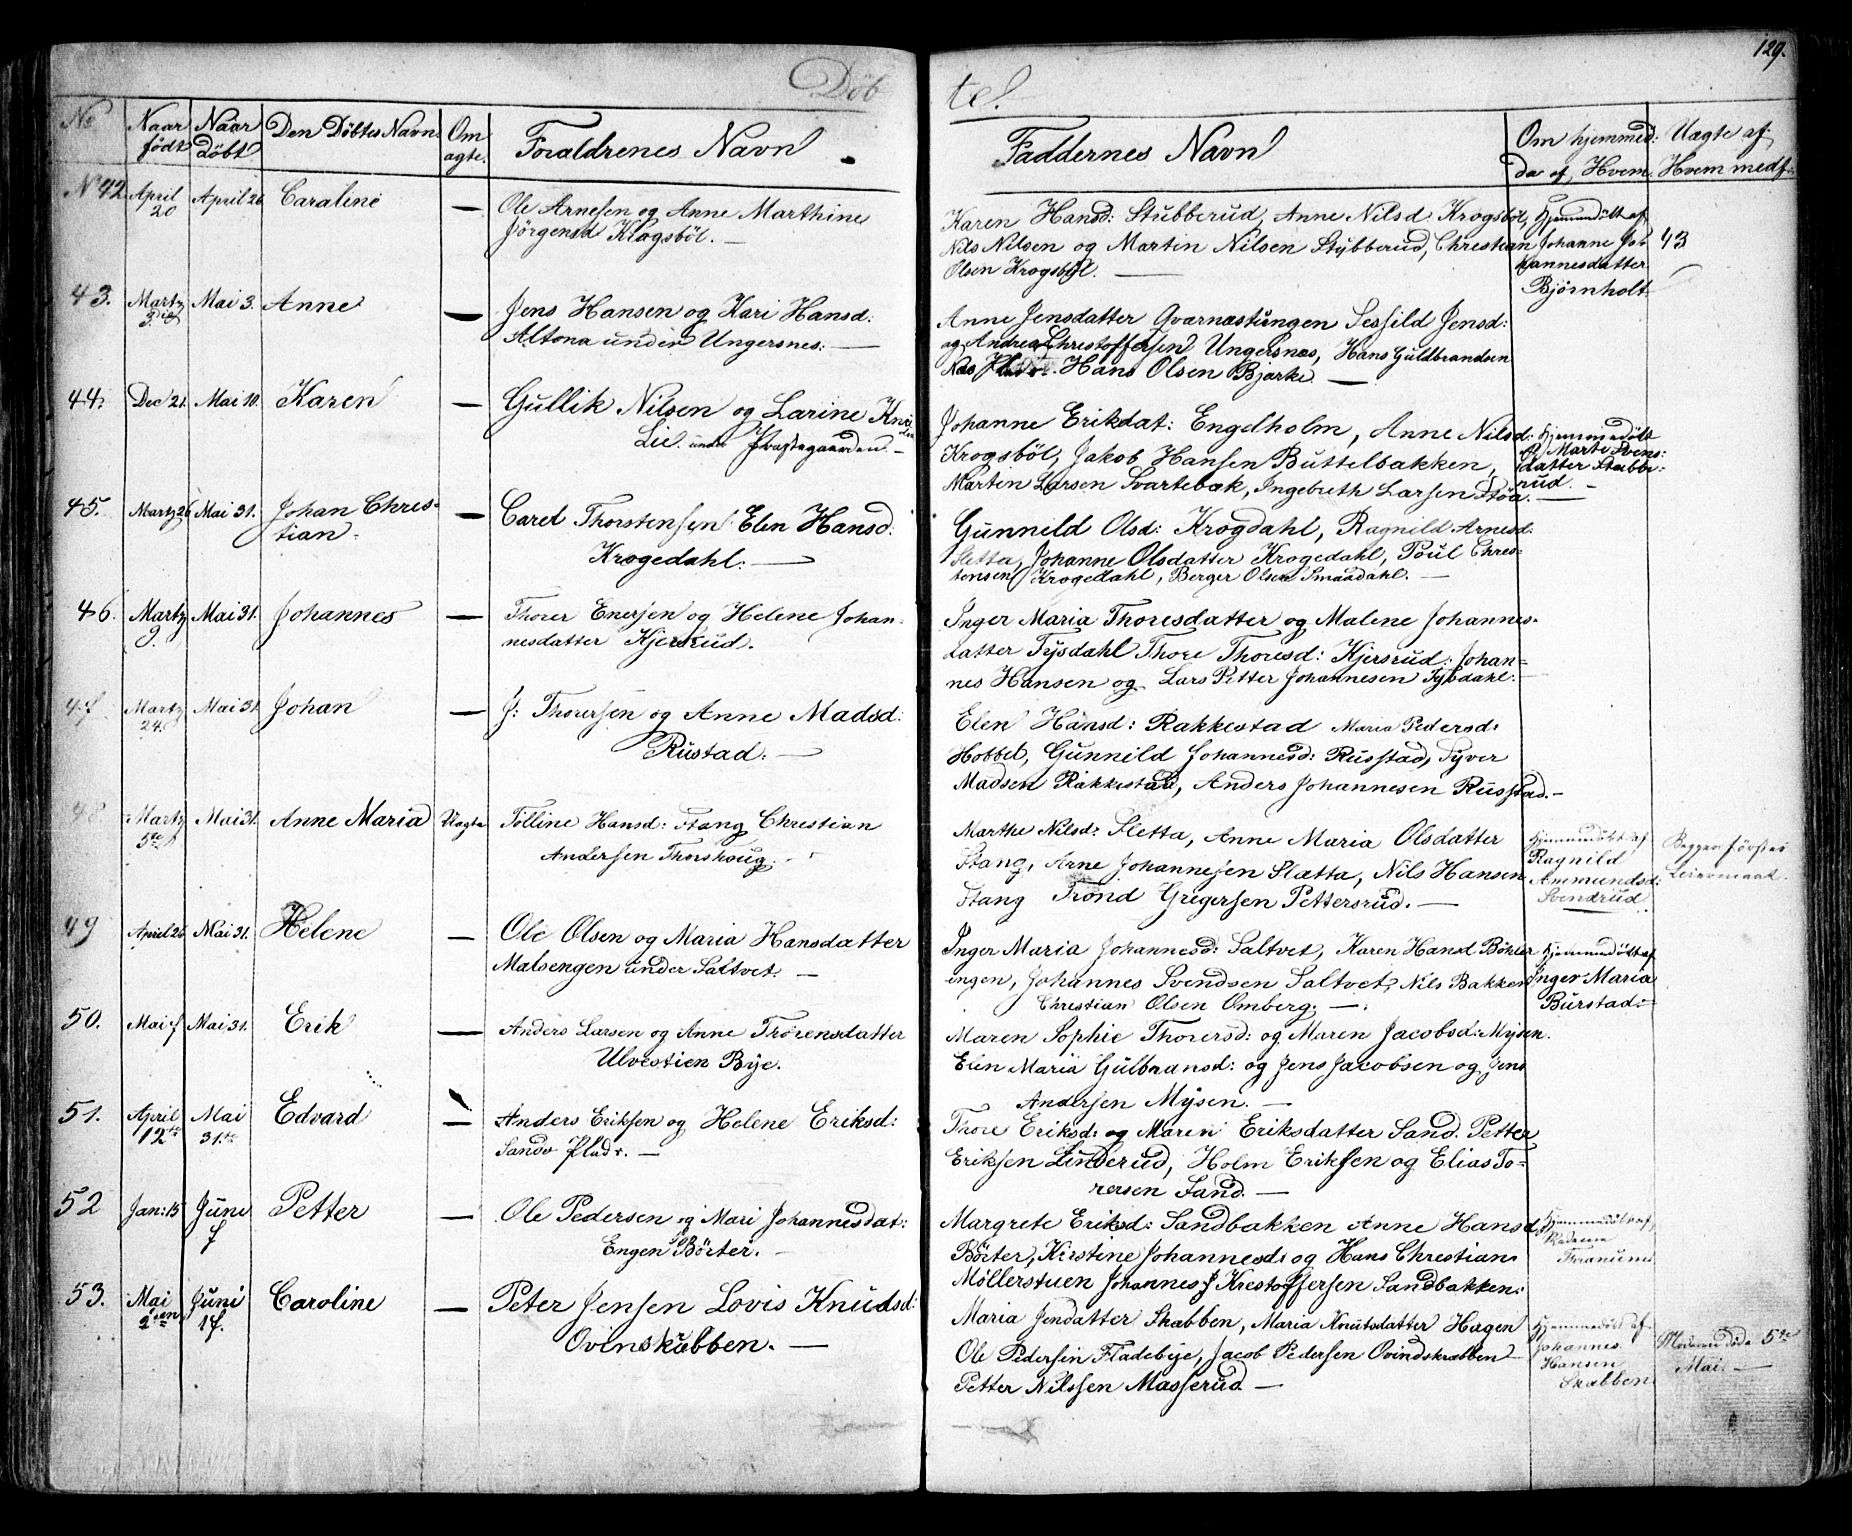 129.
Döbte.
No
Naar födt
Naar döbt
Den Döbtes Navn.
Om ægte.
Foraldrenes Navn
Faddernes Navn
Om hjemmed: da af, Hvem.
Uægte af Hvem medf:
N 42 April 20 April 26 Caraline — Ole Arnesen og Anne Marthine
Jörgensd Klogsböl. —
Karen Hansd: Stubberud, Anne Nilsd Krogsböl,
Nils Nilsen og Martin Nilsen Stybberud, Chrestian
Olsen Krogsböl. —
Hjemmedöbt af
Johanne Jo-
hannesdatter
Bjørnholt
43
43. Martz Mai 3. Anne — Jens Hansen og Kari Hansd:
Altona under Ungersnes: —
Anne Jensdatter Qværnæstungen Sesfild Jensd:
og Andreas Chrestoffersen Ungersnæs, Hans Guldbrandsen
Næs Plads. Hans Olsen Bjærke. —
44. Dec 21. Mai 10. Karen — Gullik Nilsen og Larine Knu
Lie under Præstegaarden. —
Johanne Erikdat: Engelholm, Anne Nilsd:
Krogsböl, Jakob Hansen Buttelbakken,
Marten Larsen Svartebæk, Ingebreth Larsen Stöa. —
Hjemmedöbt
af Marte Svens:
datter Stubbe:
rud. —
45. Martz 26 Mai 31. Johan Chres-
tian.
— Carel Thorstensen Elen Hansd:
Krogedahl. —
Gunneld Olsd: Krogdahl, Ragneld Arnesd:
Sletta, Johanne Olsdatter Krogedahl, Poul Chres-
tensen Krogedahl, Berger Olsen Smaadahl. —
46. Martz 9. Mai 31. Johannes — Thorer Enersen og Helene Johan-
nesdatter Kjersrud.
Inger Maria Thoresdatter og Malene Johannes-
datter Tysdahl Thore Thoresd: Kjersrud: Johan=
nes Hansen og Lars Petter Johannesen Tysdahl.
47. Martz 24. Mai 31. Johan — J: Thorersen og Anne Madsd:
Rustad. —
Elen Hansd: Rakkestad Maria Pedersd:
Hobbel, Gunnild Johannesd: Russtad, Syver
Madsen Rakkestad, Anders Johannesen Russtad. —
48 Martz 5te Mai 31. Anne Maria Uægte Tolline Hansd: Stang Chrestian
Andersen Thorshoug.
Marthe Nilsd: Sletta, Anne Maria Olsdatter
Stang, Arne Johannesen Slætta, Nils Hansen
Stang Trond Gregersen Pettersrud. —
Hjemmedöbt af
Ragnild
Ammundsd:
Svendrud
Begges förstes
Leiermaal.
49 April 26 Mai 31. Helene — Ole Olsen og Maria Hansdatter
Malsengen under Saltvet. —
Inger Maria Johannesd: Saltvet, Karen Hansd Böhler
engen, Johannes Svendsen Saltvet, Nils Bakken
Christian Olsen Omberg. —
Hjemmedöbt af
Inger Maria
Burstad:
50. Mai 7 Mai 31. Erik — Anders Larsen og Anne Trorensdatter
Ulvestien Bye.
Maren Sophie Thorersd: og Maren Jacobsd: Mysen.
Elen Maria Gulbransd: og Jens Jacobsen og Jens
Andersen Mysen. —
51. April 12te Mai 31.te Edvard — Anders Eriksen og Helene Eriksd:
Sando Plads. —
Thore Eriksd: og Maren Eriksdatter Sand. Petter
Eriksen Linderud, Holm Eriksen og Elias To-
rersen Sand. —
52 Jan: 15 Juni 7 Petter — Ole Pedersen og Mari Johannesdat:
Engen Börter. —
Margrete Eriksd: Sandbakken Anne Hansd,
Börter, Kirstine Johannesd: og Hans Chrestian
Møllerstuen Johannes Krestoffersen Sandbakken:
Hjemmedöbt af
Franum
53. Mai 2den Juni 17. Caroline — Peter Jensen Lovis Knudsd:
Ovinskubben. —
Maria Jendatter Skabben, Maria Knutsdatter Hagen
Ole Pedersen Fladebye, Jacob Pedersen Ovindskrabben
Petter Nilssen Masserud —
Hjemmedöbt af
Johannes
Hansen
Skabben
Moderen Död 5te
Mai. —